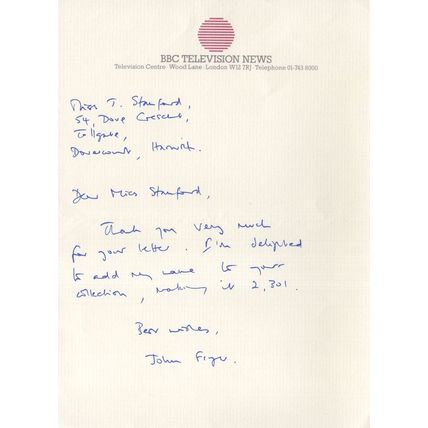 BBC TELEVISION NEWS
Television Centre Wood Lane London W12 7RJ Telephone 01-743 8000
Miss T. Stanford,
54, Dove Crescent,
Tollgate,
Dovercourt, Harwich.
Dear Miss Stanford,
Thank you very much
for your letter. I'm delighted
to add my name to your
collection, making it 2,301.
Best wishes,
John